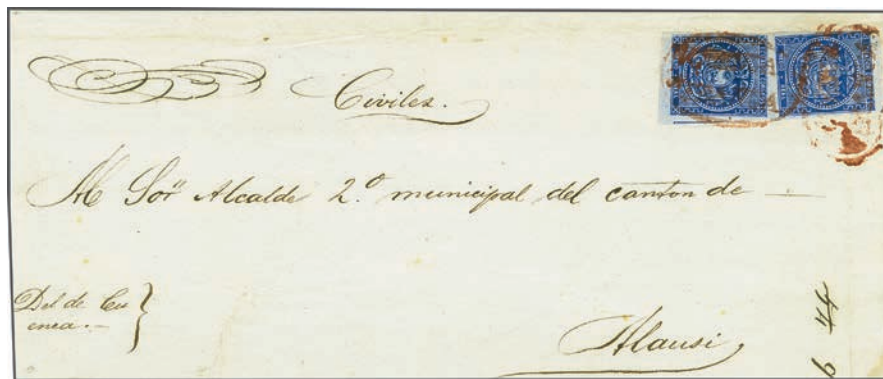 Civiles.
Al Sor Alcalde 2.º municipal del canton de —
Del de Cu
enca.—
Alausi,